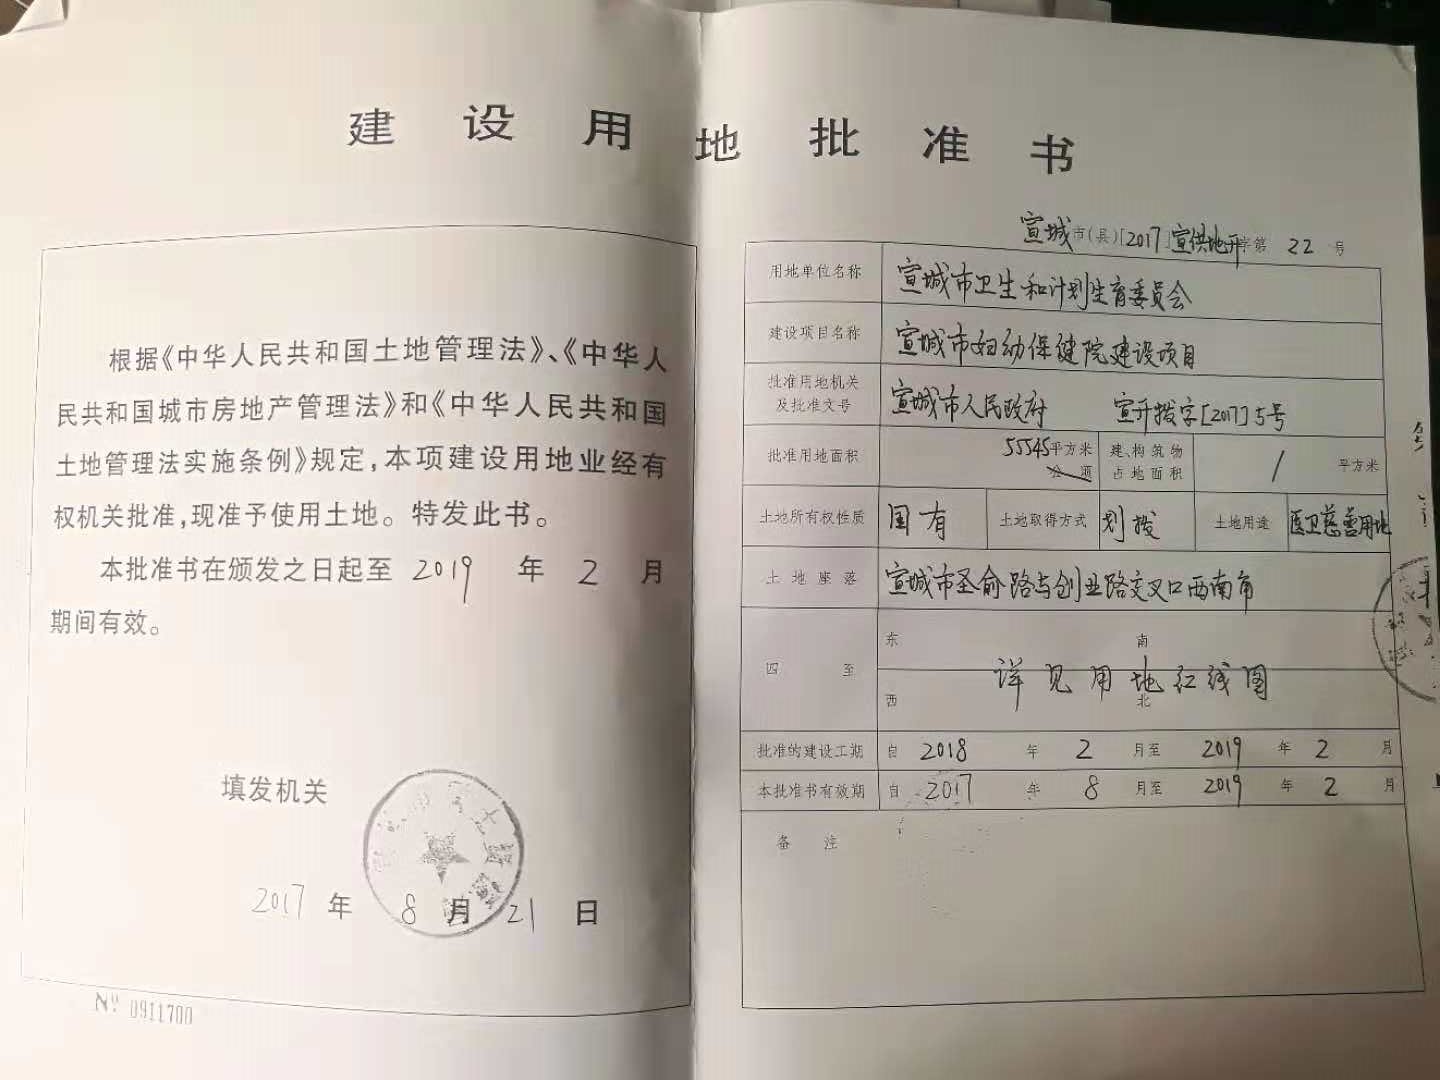 建设用地批准书
根据《中华人民共和国土地管理法》、《中华人
民共和国城市房地产管理法》和《中华人民共和国
土地管理法实施条例》规定，本项建设用地业经有
权机关批准，现准予使用土地。特发此书。
本批准书在颁发之日起至 2019 年 2 月
期间有效。
填发机关
2017 年 8 月 21 日
Nº 0911700
宣城市(县)[2017]宣供地开字第 22 号
用地单位名称 宣城市卫生和计划生育委员会
建设项目名称 宣城市妇幼保健院建设项目
批准用地机关
及批准文号 宣城市人民政府 宣开拨字[2017]5号
批准用地面积 55545平方米
公顷
建、构筑物
占地面积 / 平方米
土地所有权性质 国有 土地取得方式 划拨 土地用途 医卫慈善用地
土地座落 宣城市圣俞路与创业路交叉口西南角
四至 东 南
详见用地红线图
西 北
批准的建设工期 自 2018 年 2 月至 2019 年 2 月
本批准书有效期 自 2017 年 8 月至 2019 年 2 月
备注